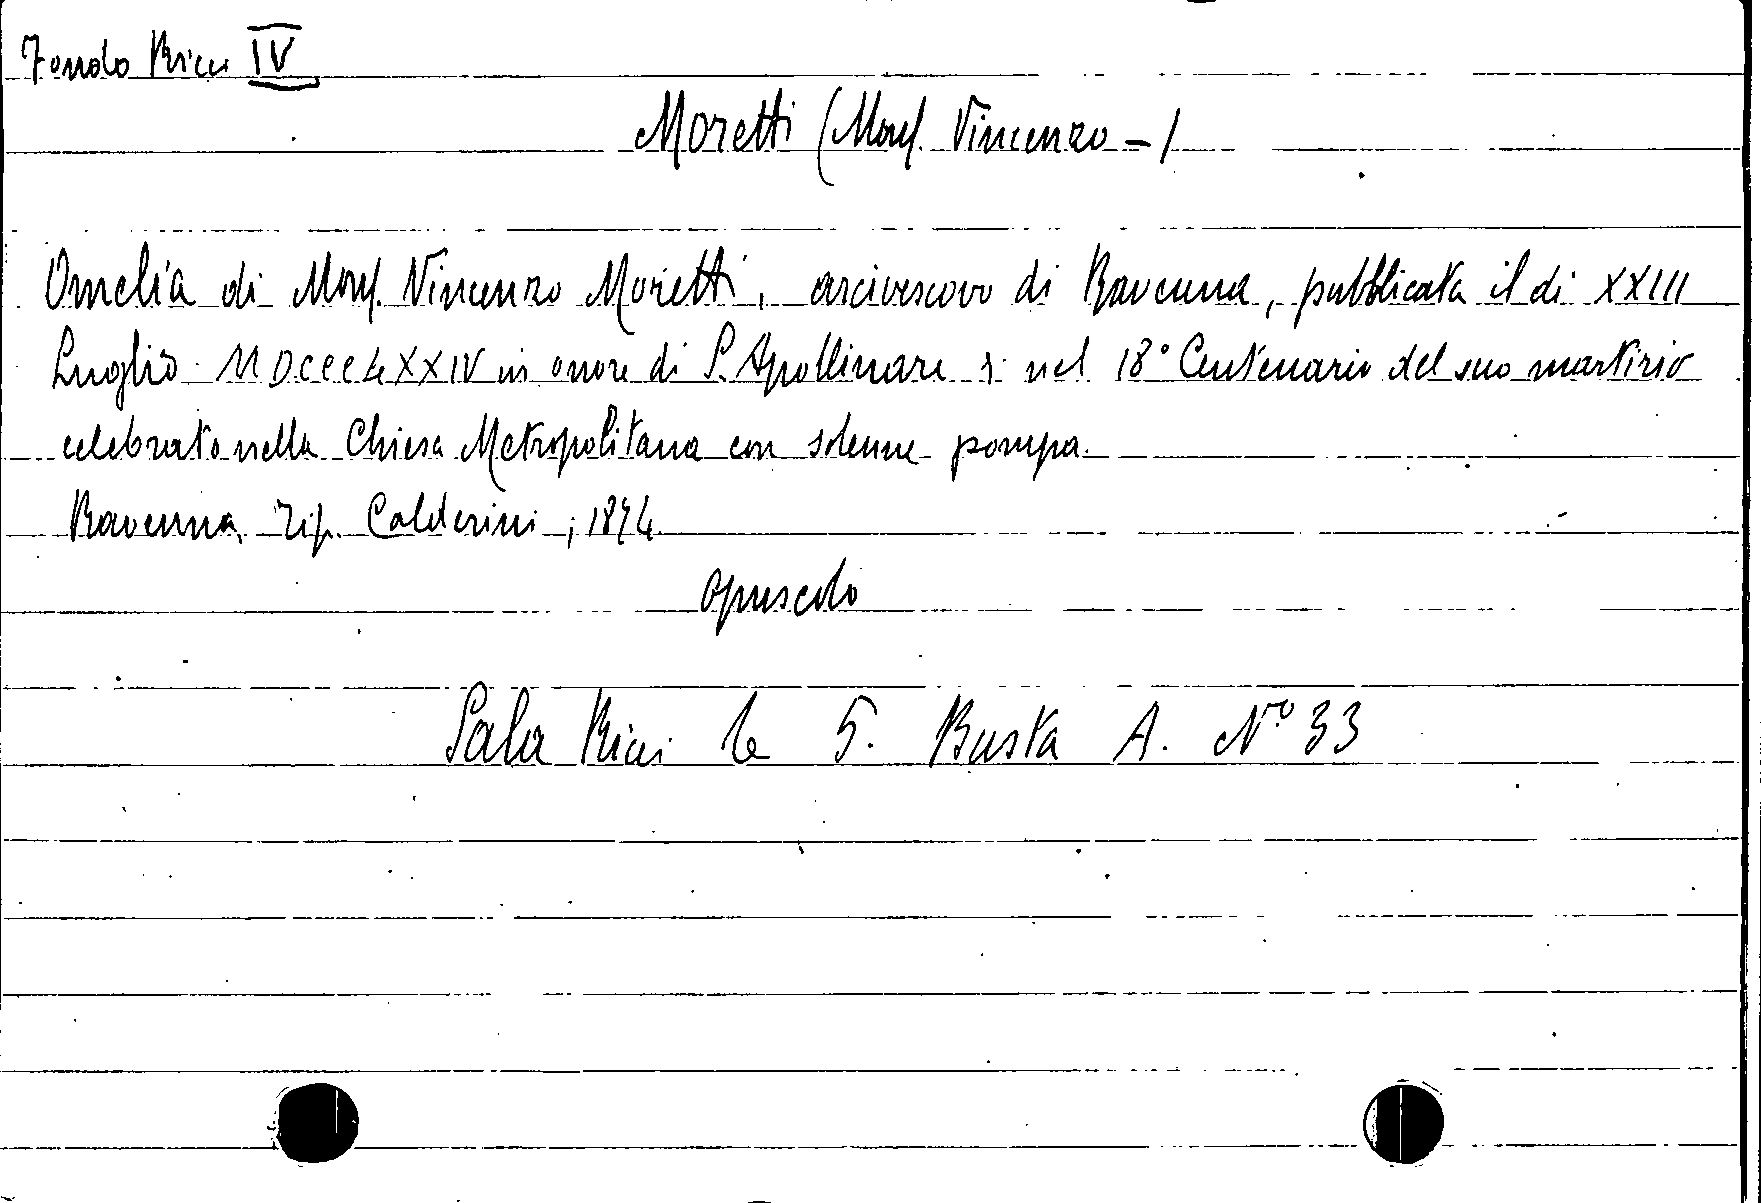 Fondo Ricci IV
Moretti (Mons. Vincenzo - )
Omelia di Mons. Vincenzo Moretti, arcivescovo di Ravenna, pubblicata il dì XXIII
Luglio MDCCCLXXIV in onore di S. Apollinare nel 18° Centenario del suo martirio
celebrato nella Chiesa Metropolitana con solenne pompa.
Ravenna, Tip. Calderini, 1874
opuscolo
Sala Ricci 5. Busta A. N° 33